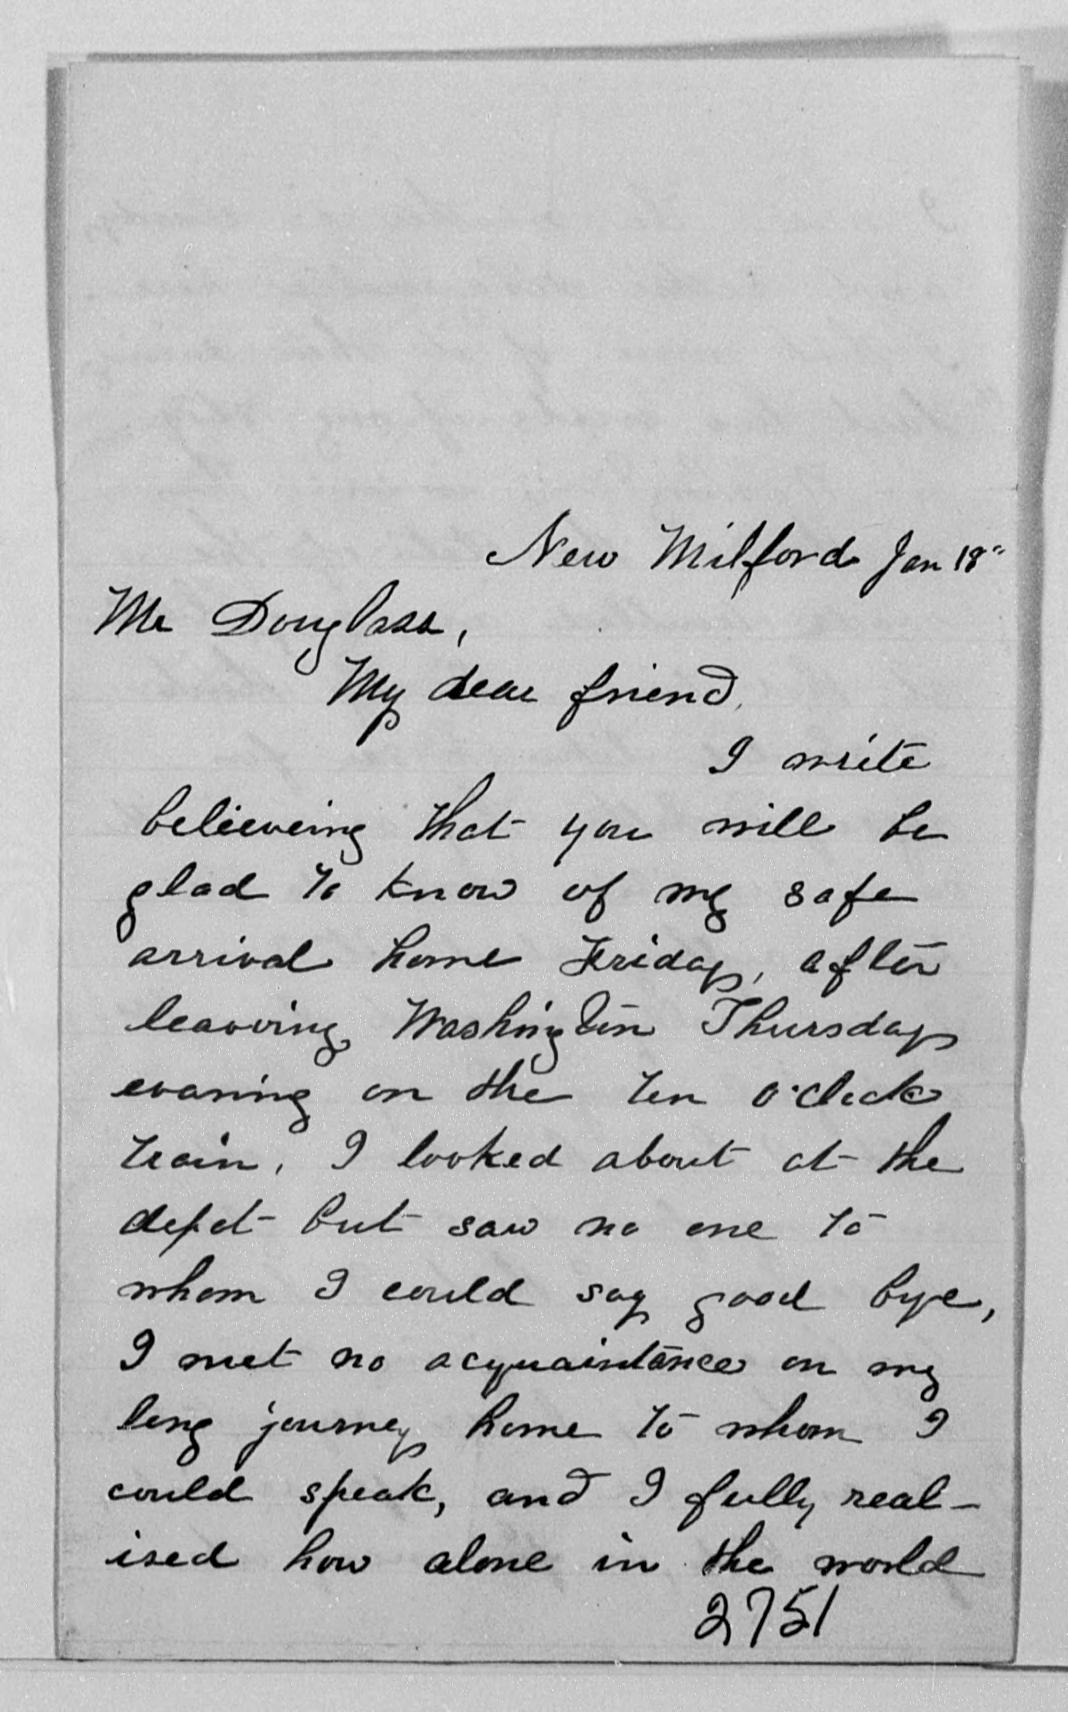 New Milford Jan 18"
Mr Douglass,
My dear friend,
I write
believeing that you will be
glad to know of my safe
arrival home Friday, after
leaving Washington Thursday
evening on the ten o'clock
train, I looked about at the
depot but saw no one to
whom I could say good bye,
I met no acquaintance on my
long journey home to whom I
could speak, and I fully real-
ised how alone in the world
2751